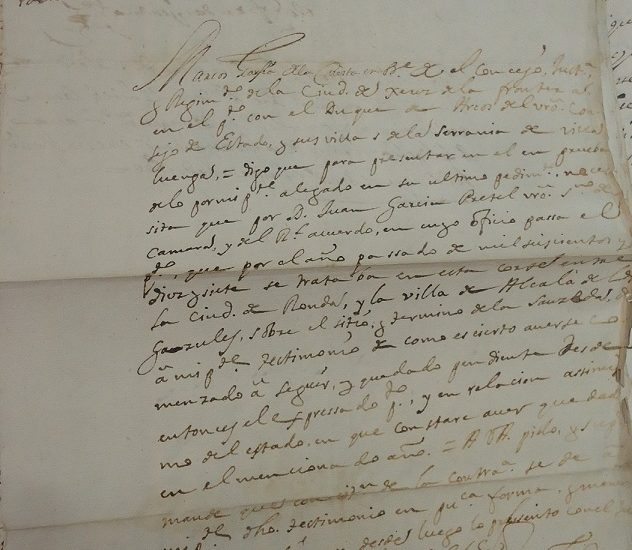 Marcos García de la Cuesta en Bre. de el Concejo, Justa.
y Regimto. de la Ciud. de Xerez de la frontera al
en el pto. con el Duque de Arcos del vro. Con
sejo de Estado, y sus villas de la serrania de villa
luenga, = digo que para presentar en el en prueba
de lo por mi pte. alegado en su ultimo pedimto. nece
sita que por D. Juan Garcia Pretel vro. sno. de
Camara, y del Rl. acuerdo, en cuyo oficio passa el
pto., que por el año passado de mil supicientos y
diez y siete se trataba en esta corte entre
la Ciud. de Ronda, y la villa de Alcalá de los
Gazules, sobre el sitio, y termino de la Sauzeda, de
â mi pte. testimonio de como es cierto averse co
menzado â seguir, y quedado pendiente desde
entonces el expressado pto., y en relacion assimis
mo del estado, en que constare aver quedado
en el mencionado año. = A V.A. pido, y supco.
mande que con citon. de la contraa. se de a
mi pte. dho. testimonio en puca. forma, y
desde luego lo presento con el